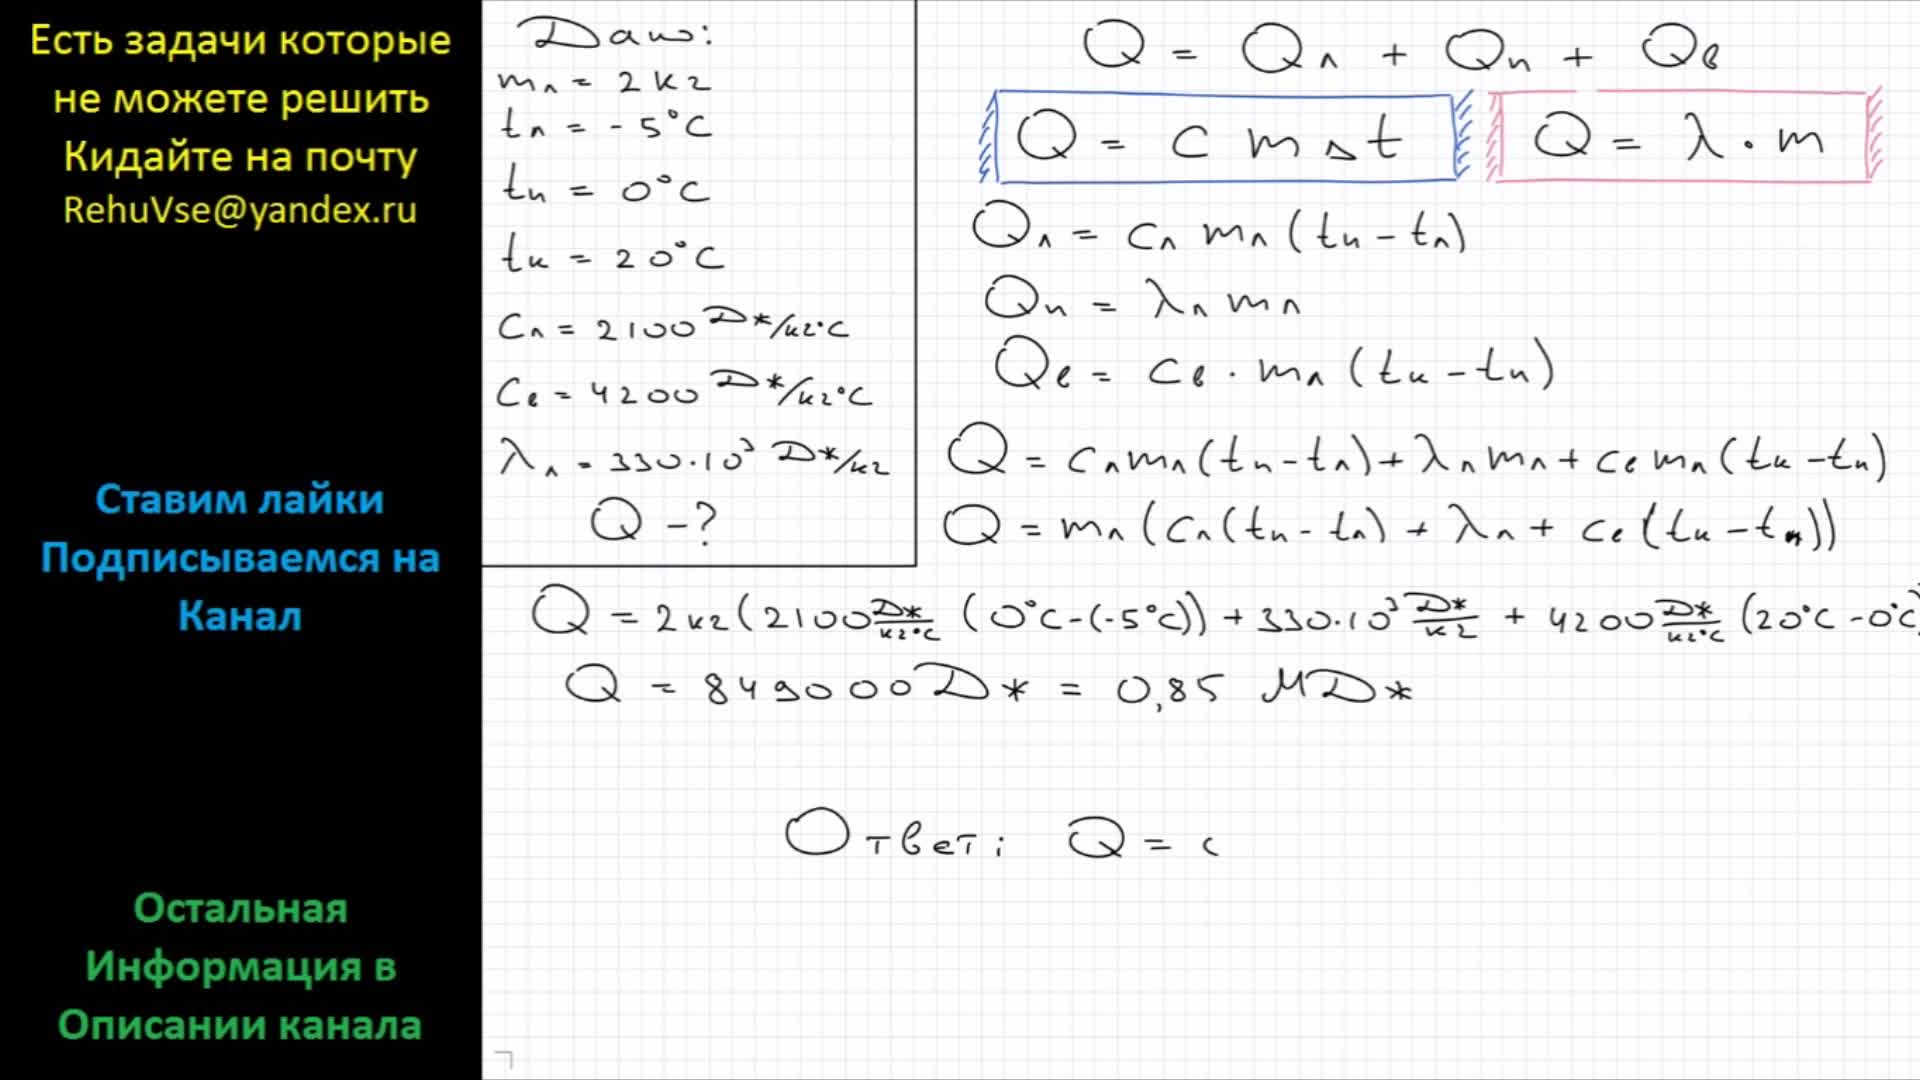 Есть задачи которые
не можете решить
Кидайте на почту
RehuVse@yandex.ru
Ставим лайки
Подписываемся на
Канал
Остальная
Информация в
Описании канала
Дано:
mл = 2 кг
tл = -5°C
tп = 0°C
tк = 20°C
Cл = 2100 Дж/кг°C
Cв = 4200 Дж/кг°C
λл = 330·10³ Дж/кг
Q - ?
Q = Qл + Qп + Qв
Q = c m Δt
Q = λ · m
Qл = cл mл (tп - tл)
Qп = λл mл
Qв = cв · mл (tк - tп)
Q = cл mл (tп - tл) + λл mл + cв mл (tк - tп)
Q = mл (cл (tп - tл) + λл + cв (tк - tп))
Q = 2 кг (2100 Дж/кг°C (0°C - (-5°C)) + 330·10³ Дж/кг + 4200 Дж/кг°C (20°C - 0°C)
Q = 849000 Дж = 0,85 МДж
Ответ: Q =